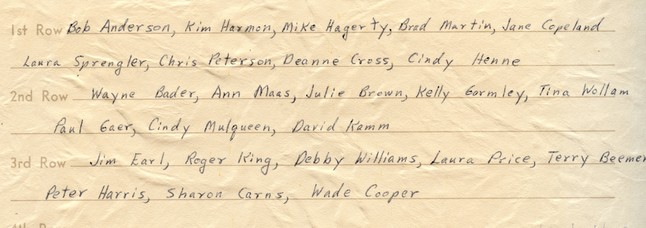 1st Row Bob Anderson, Kim Harmon, Mike Hagerty, Brad Martin, Jane Copeland
Laura Sprengler, Chris Peterson, Deanne Cross, Cindy Henne
2nd Row Wayne Bader, Ann Maas, Julie Brown, Kelly Gormley, Tina Wollam
Paul Gaer, Cindy Mulqueen, David Kamm
3rd Row Jim Earl, Roger King, Debby Williams, Laura Price, Terry Beemer
Peter Harris, Sharon Carns, Wade Cooper